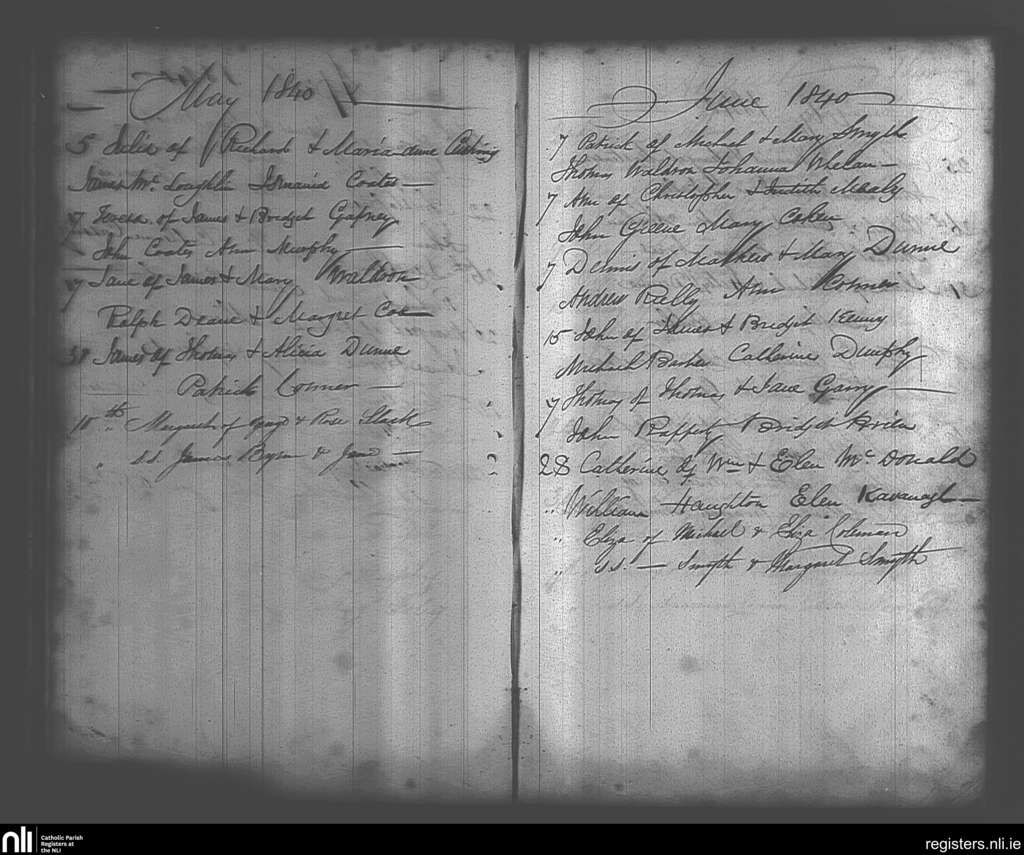 May 1840
5 Julia of Richard & Maria anne
James Mc Loughlin Coates —
7 Teresa of James & Bridget Gafney
John Coates Ann Murphy —
7 Jane of James & Mary Waldron
Ralph Deane & Margret Cox
James of Thomas & Alicia Dunne
Patrick Cormer —
10th Margaret of & Rose Slack
" s.s. James Byrn & Jane —
June 1840
7 Patrick of Michael & Mary Smyth
Thomas Waldron Johanna Whelan —
7 Ann of Christopher & Judith Mealy
John Greene Mary
7 Dennis of Mathew & Mary Dunne
Andrew Ann Cormer
15 John of James & Bridget Kenny
Michael Catherine Dumphy
7 Thomas of Thomas & Jane Garry —
John Raffety Bridget Brien
28 Catherine of Wm & Elen Mc Donald
" William Haughton Elen Kavanagh —
" Eliza of Michael & Eliza Coleman
" s.s. — Smyth & Margaret Smyth
nli
Catholic Parish
Registers at
the NLI
registers.nli.ie